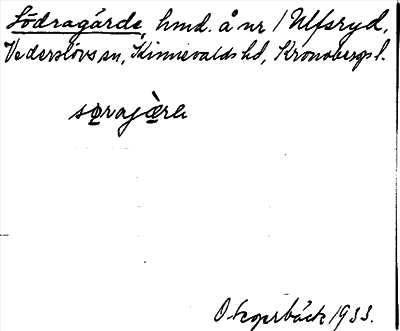 Södragårde, hmd. å nr 1 Ulfsryd,
Vederslövs sn, Kinnevalds hd, Kronobergs l.
sørajὰrə
O. Koprbäck 1933.